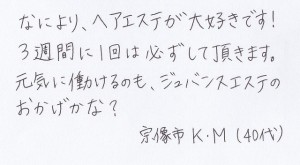 なにより、ヘアエステが大好きです!
3週間に1回は必ずして頂きます。
元気に働けるのも、ジュバンスエステの
おかげかな?
宗像市 K・M (40代)